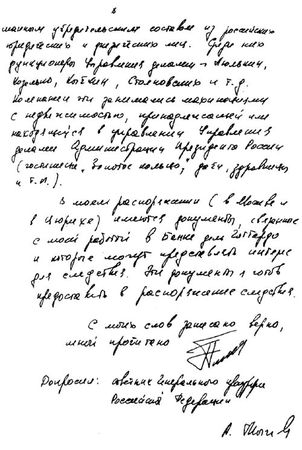 составом из российских
юридических и физических лиц. Среди них
функционеры Управления делами –
и т.д.
Компании эти занимались махинациями
с недвижимостью, принадлежащей или
находящейся в управлении Управления
делами Администрации Президента России
(гостиницы, Золотое кольцо, дачи, здравницы
и т.п.).
В моем распоряжении (в Москве и
в Цюрихе) имеются документы, связанные
с моей работой в Банке дель Готтардо
и которые могут представлять интерес
для следствия. Эти документы я готов
предоставить в распоряжение следствия.
С моих слов записано верно,
мной прочитано
Допросил: советник Генерального прокурора
Российской Федерации